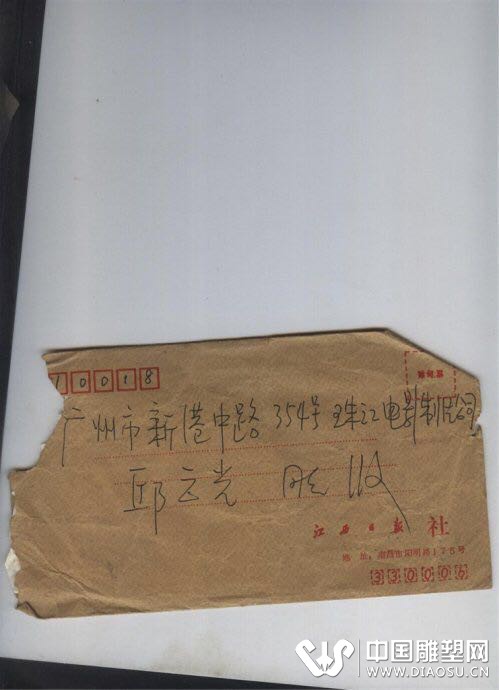 10018
贴邮票
广州市新港中路354号珠江电影制片公司
邱云光 收
江西日报社
地址:南昌市阳明路175号
330006
中国雕塑网
WWW.DIAOSU.CN